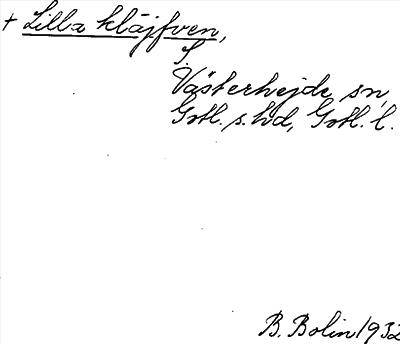 + Lilla kläjfven,
S.
Västerhejde sn,
Gotl. s. hd, Gotl. l.
B. Bolin 1932